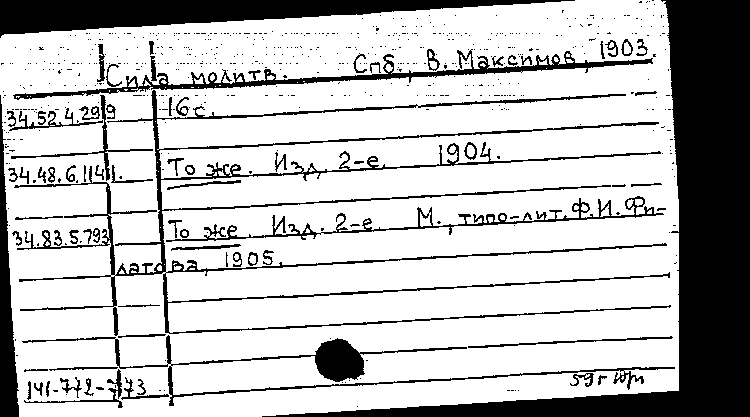 Сила молитв. Спб., В. Максимов, 1903.
34.52.4.299 16 с.
34.48.6.1141. То же. Изд. 2-е. 1904.
34.83.5.793 То же. Изд. 2-е М., типо-лит. Ф. И. Фи-
латова, 1905.
141-772-773 59г